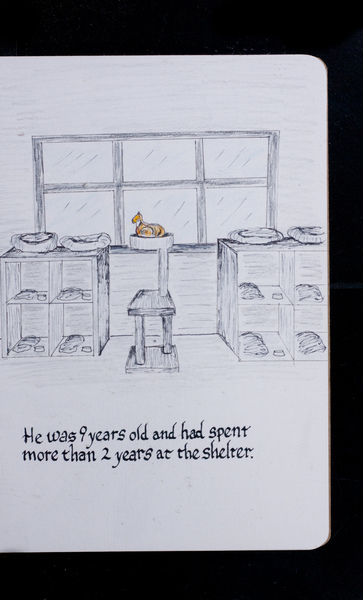 He was 9 years old and had spent
more than 2 years at the shelter.